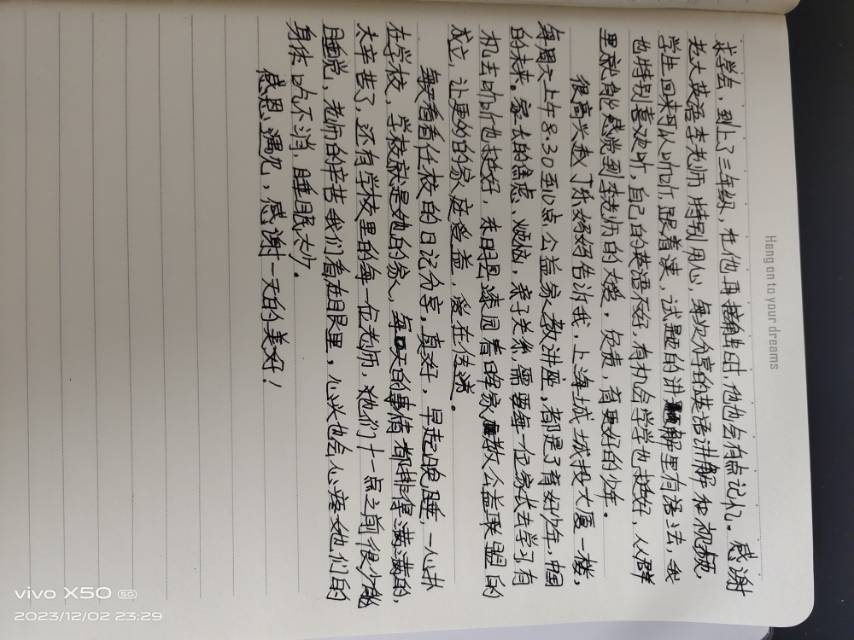 Hang on to your dreams
求学会，到上了三年级，在他再接触时，他也会有点记忆。感谢
老大英语李老师特别用心，每次分享的英语讲解和视频，
学生回来可以听听，跟着读，试题的讲解里有语法，我
也特别喜欢听，自己的英语不好，有机会学学也挺好，从群
里就能感觉到李老师的大爱，负责，有更好的少年。
很高兴赵丁乐妈妈告诉我，上海城城投大厦一楼，
每周六上午8.30至10点公益家教讲座，都是为了育好少年，中国
的未来。家长的焦虑、烦恼，亲子关系，需要每一位家长去学习，有
机会去听听也挺好，来日是漆园春晖家庭教公益联盟的
成立，让更多的家庭受益，爱在传递。
每天看看任校的日记分享，真好，早起晚睡，一心扑
在学校，学校就是她的家，每天的事情都排得满满的，
太辛苦了，还有学校里的每一位老师，她们十一点之前很少能
睡觉，老师的辛苦我们看在眼里，心头也会心疼她们的
身体吃不消，睡眠太少。
感恩、遇见，感谢一天的美好！
vivo X50 5G
2023/12/02 23:29